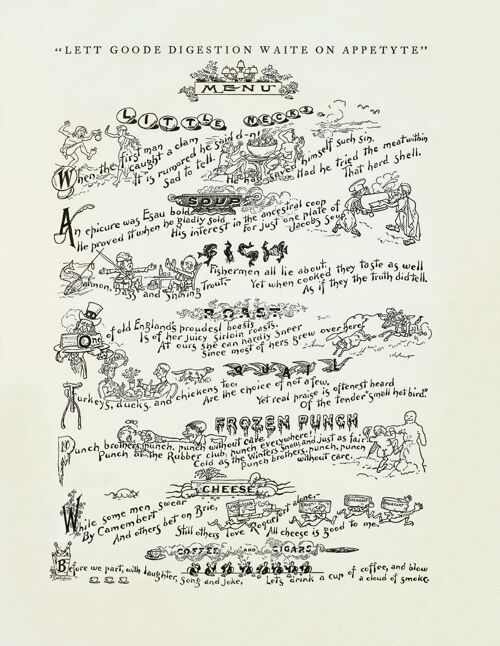 "LETT GOODE DIGESTION WAITE ON APPETYTE"
MENU
LITTLE NECKS
When the first man caught a clam
It is rumored he said d-n!
Sad to tell.
He had saved himself such sin.
Had he tried the meat within
That hard shell.
SOUP
An epicure was Esau bold
He proved it when he gladly sold
His interest in the ancestral coop
For just one plate of Jacobs Soup
FISH
Fishermen all lie about
Salmon, Bass and Shining Trout.
Yet when cooked they taste as well
As if they the truth did tell.
ROAST
One of old England's proudest boasts
Is of her juicy Sirloin roasts.
At ours she can hardly sneer
Since most of hers grew over here.
QUAIL
Turkeys, ducks, and chickens too;
Are the choice of not a few.
Yet real praise is oftenest heard
Of the tender "small hot bird."
FROZEN PUNCH
Punch brothers, punch, punch without care
Punch at the Rubber club, punch everywhere!
Cold as the Winters Snow, and just as fair
Punch brothers, punch, punch
without care.
CHEESE
While some men swear
By Camembert
And others bet on Brie,
Still others love Roquefort alone,-
All cheese is good to me.
COFFEE AND CIGARS
Before we part, with laughter, Song and Joke,
Let's drink a cup of coffee, and blow
a cloud of smoke.